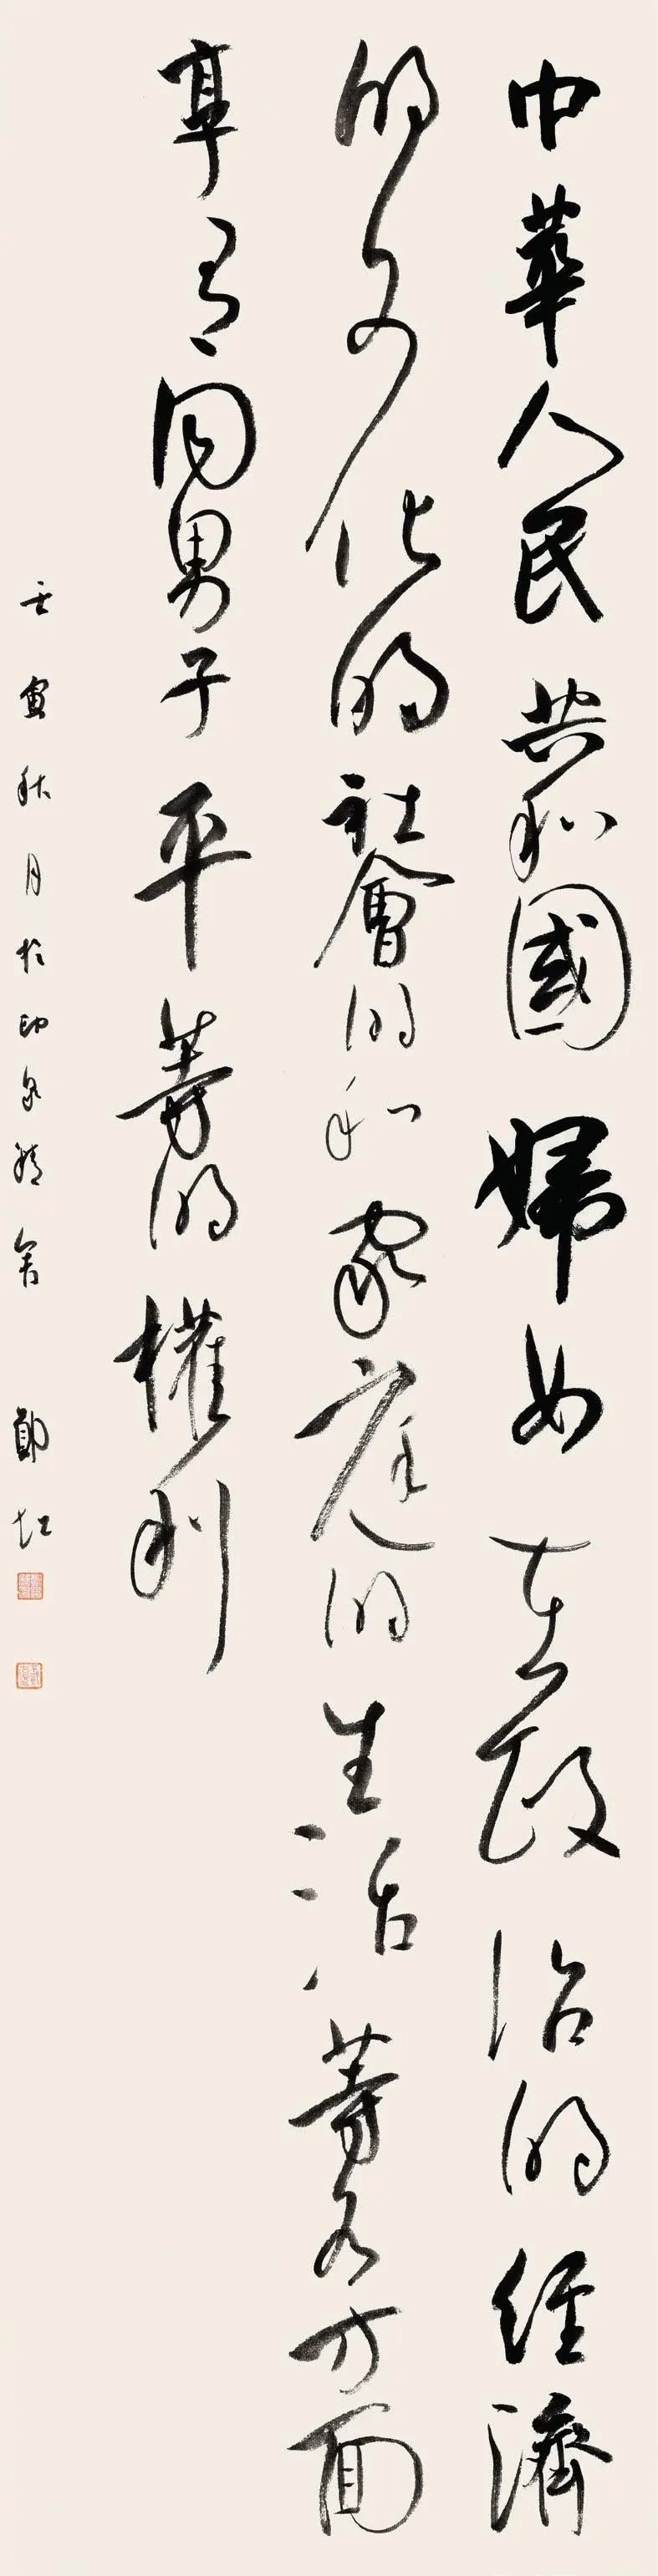 中華人民共和國婦女在政治的經濟
的文化的社會的和家庭的生活等各方面
享有同男子平等的權利
壬寅秋月於印泉精舍 鄭虹